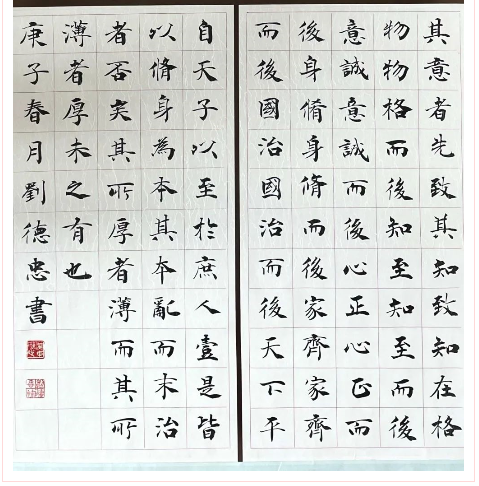 其意者先致其知致知在格
物物格而後知至知至而後
意誠意誠而後心正心正而
後身脩身脩而後家齊家齊
而後國治國治而後天下平
自天子以至於庶人壹是皆
以脩身為本其本亂而末治
者否矣其所厚者薄而其所
薄者厚未之有也
庚子春月劉德忠書